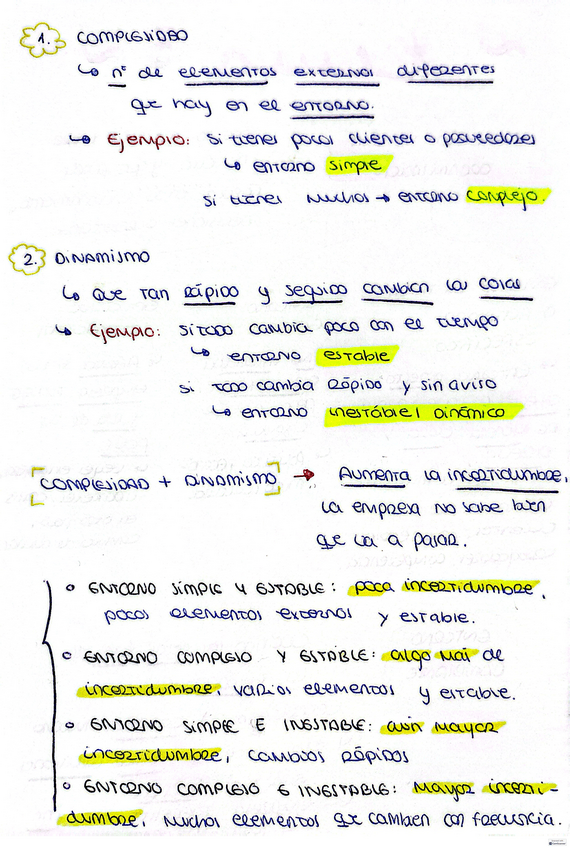 1. COMPLEJIDAD
↳ nº de elementos externos diferentes
que hay en el entorno.
↳ Ejemplo: si tienes pocos clientes o proveedores
↳ entorno simple
si tienes muchos → entorno complejo.
2. DINAMISMO
↳ Que tan rápido y seguido cambian las cosas
↳ Ejemplo: si todo cambia poco con el tiempo
↳ entorno estable
si todo cambia rápido y sin aviso
↳ entorno inestable / dinámico
[COMPLEJIDAD + DINAMISMO] → Aumenta la incertidumbre,
la empresa no sabe bien
que va a pasar.
○ ENTORNO SIMPLE Y ESTABLE: poca incertidumbre,
pocos elementos externos y estable.
○ ENTORNO COMPLEJO Y ESTABLE: algo más de
incertidumbre, varios elementos y estable.
○ ENTORNO SIMPLE E INESTABLE: aún mayor
incertidumbre, cambios rápidos
○ ENTORNO COMPLEJO E INESTABLE: mayor incerti-
dumbre, muchos elementos que cambien con frecuencia.